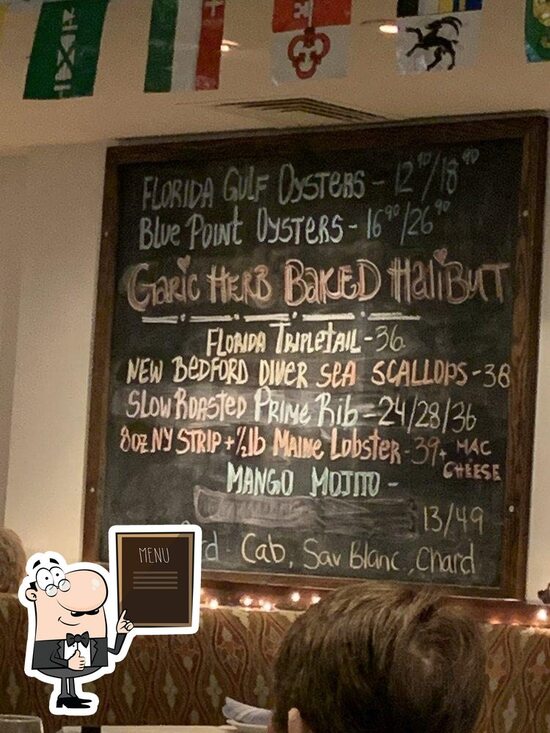 FLORIDA GULF OYSTERS - 12⁹⁰/18⁹⁰
BLUE POINT OYSTERS - 16⁹⁰/26⁹⁰
GARIC HERB BAKED HALIBUT
FLORIDA TRIPLETAIL - 36
NEW BEDFORD DIVER SEA SCALLOPS - 38
SLOW ROASTED PRIME RIB - 24/28/36
8oz NY STRIP + ½lb MAINE LOBSTER - 39 + MAC CHEESE
MANGO MOJITO -
13/49
Cab, Sav Blanc, Chard
MENU